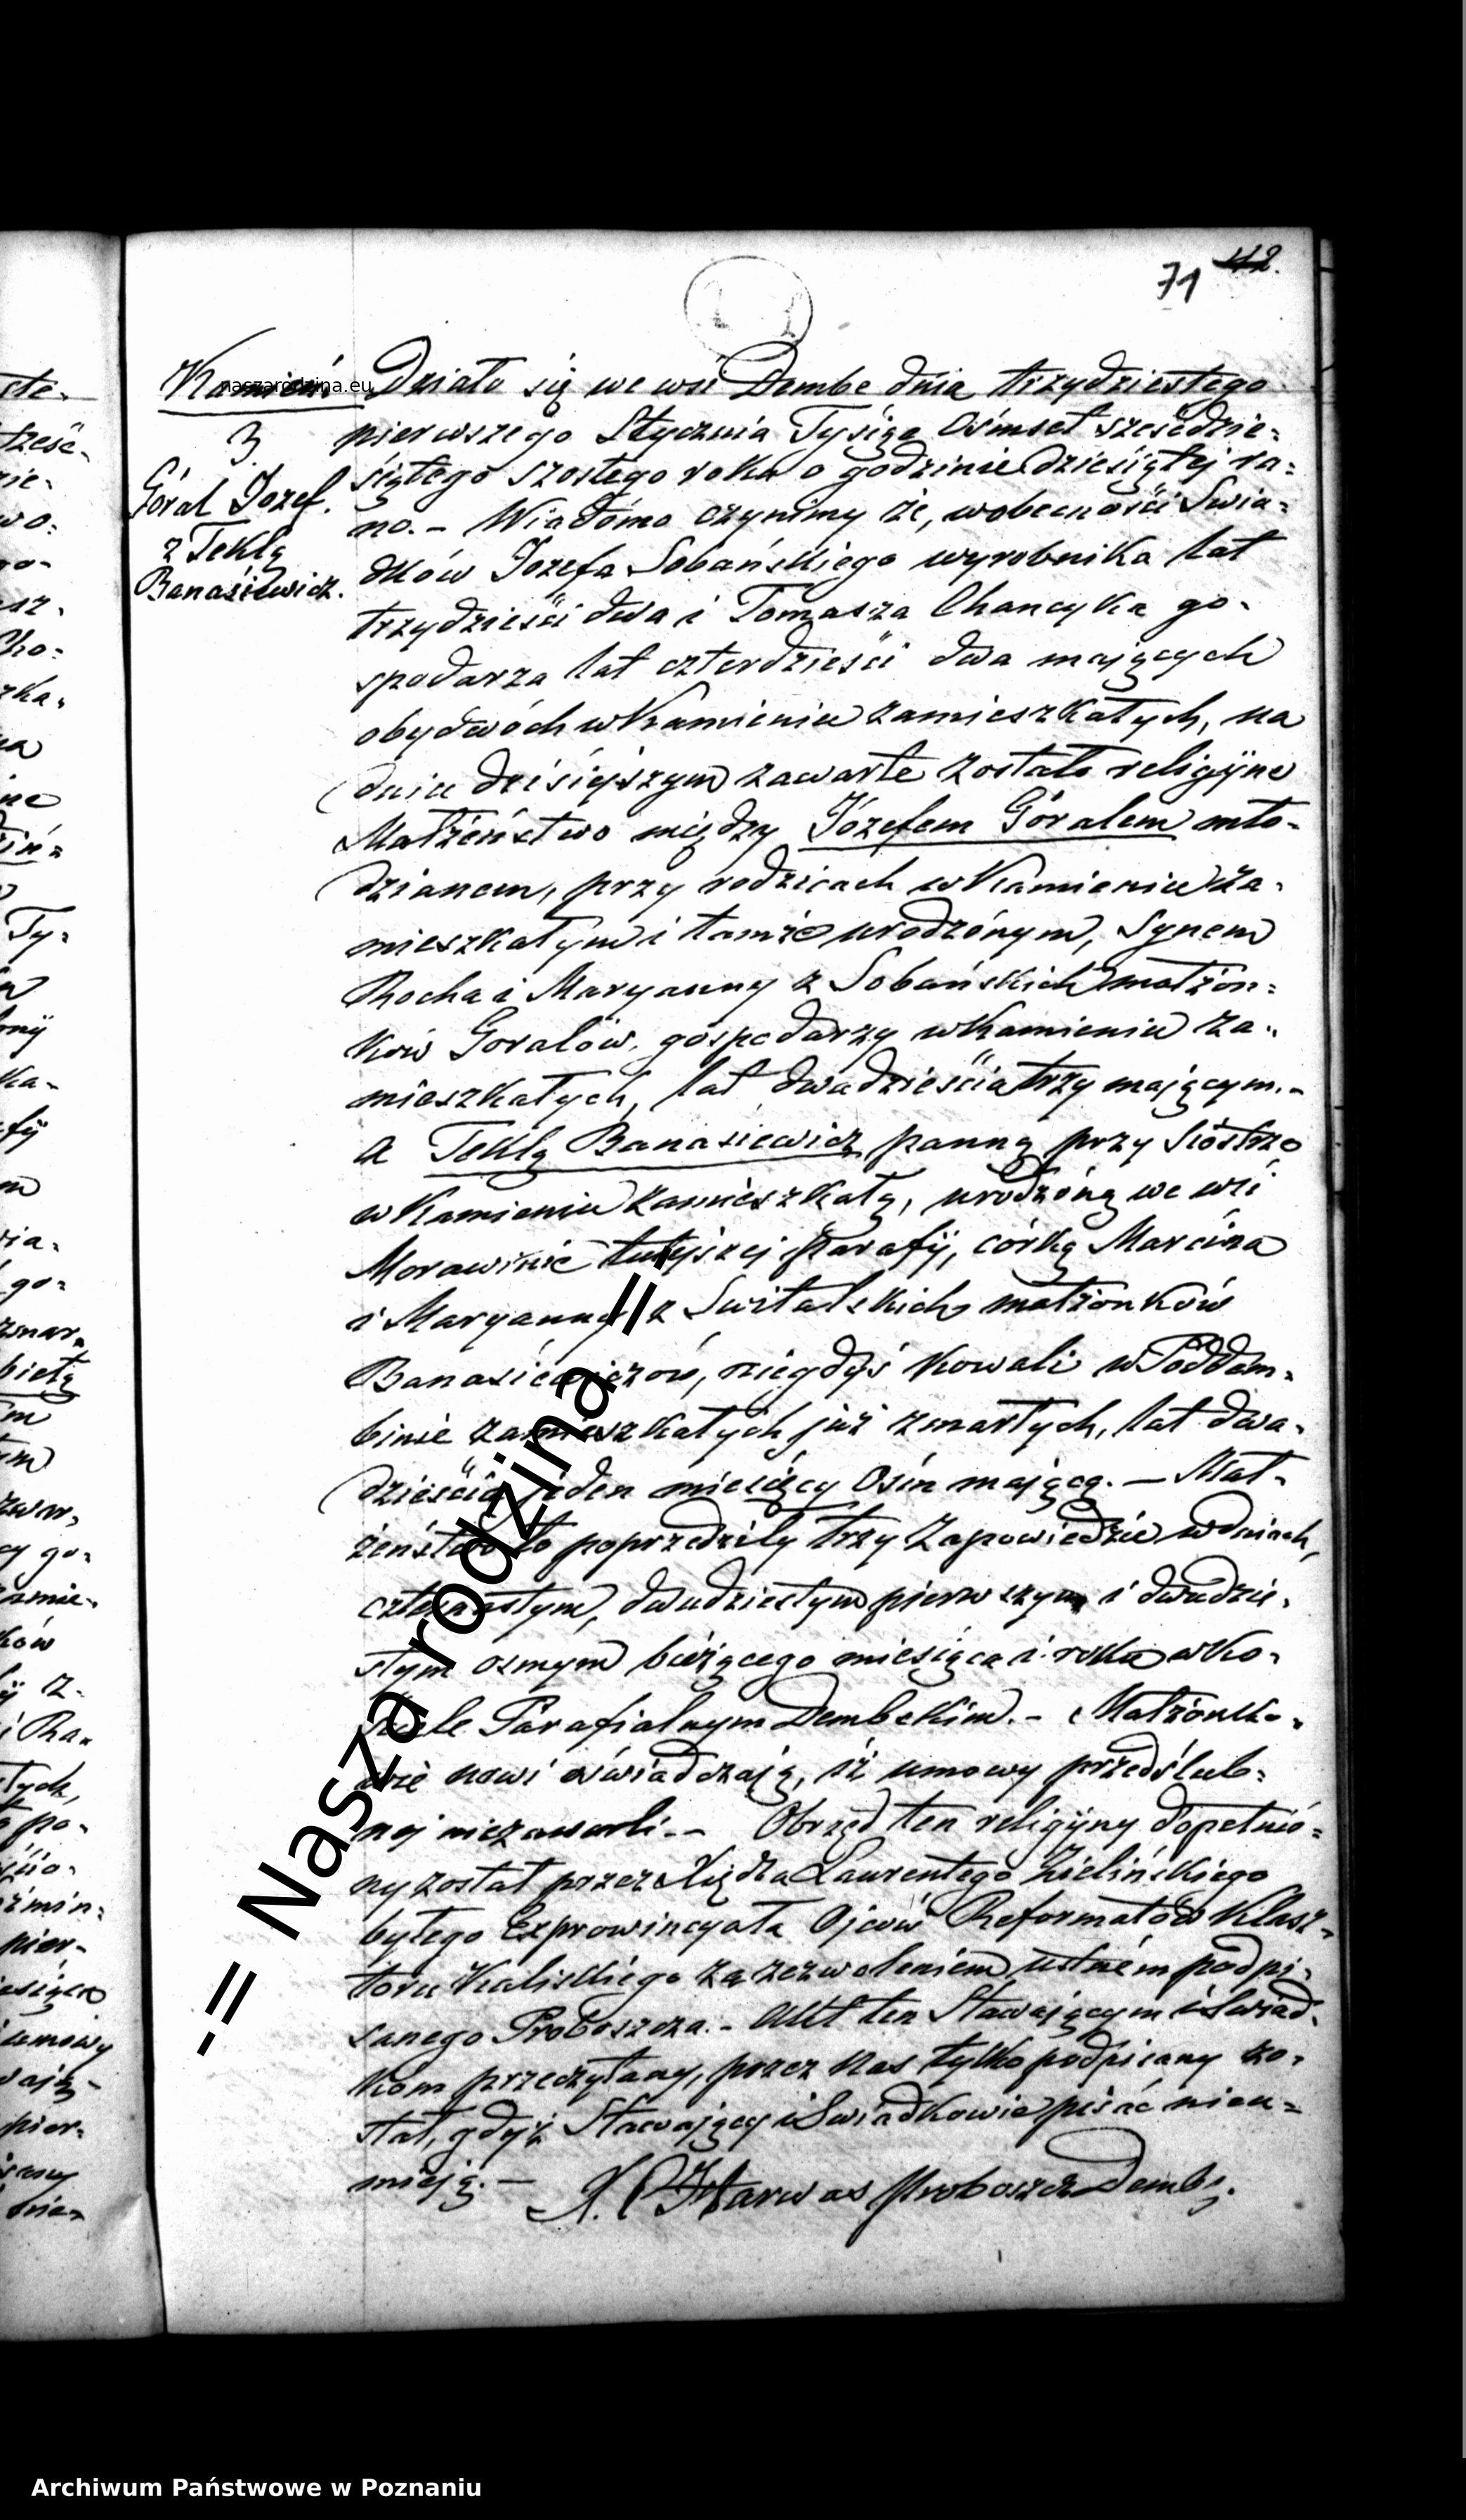 71 112.
Kamień
3
Góral Jozef.
z Teklą
Banasiewicz.
Działo się we wsi Dembe dnia trzydziestego
pierwszego Stycznia Tysiąc Ośmset sześćdzie=
siątego szostego roku o godzinie dziesiątej ra=
no. – Wiadomo czynimy że, wobecności Swia=
dków Jozefa Sobańskiego wyrobnika lat
trzydzieści dwa i Tomasza Chancyka go-
spodarza lat czterdzieści dwa mających
obydwóch w Kamieniu zamieszkałych, na
dniu dzisiejszym zawarte zostało religijne
Małżeństwo między Józefem Góralem mło-
dzianem, przy rodzicach w Kamieniu za-
mieszkałym i tamże urodzónym, Synem
Rocha i Maryanny z Sobańskich małżon=
ków Goralów, gospodarzy w Kamieniu za-
mieszkałych, lat dwadzieścia trzy mającym. –
a Teklą Banasiewicz panną przy Siostrze
w Kamieniu zamieszkałą, urodzóną we wsi
Morawinie tutejszej Parafij, córką Marcina
i Maryanny z Switalskich małżonków
Banasiewiczów, niegdyś Kowali w Poddem-
binie zamieszkałych już zmarłych, lat dwa-
dzieścia jeden miesięcy Ośm mającą. – Mał-
żeństwo to poprzedziły trzy Zapowiedzie w dniach,
czternastym, dwudziestym pierwszym i dwudzie-
stym osmym bieżącego miesiąca i roku w Ko-
ściele Parafialnym Dembskim. – Małżonko-
wie nowi oświadczają, iż umowy przedślub=
nej niezawarli. – Obrzęd ten religijny dopełnió=
ny został przez Xiędza Laurentego Zielińskiego
byłego Exprowincyała Ojców Reformatów Klasz-
toru Kaliskiego za zezwoleniem ustném podpi-
sanego Proboszcza. – Akt ten Stawającym i Swiad-
kom przeczytany, przez Nas tylko podpisany zo-
stał, gdyż Stawający i Swiadkowie pisać nieu=
mieją. – X. Harwas Proboszcz Dembs.
naszarodzina.eu
-= Nasza rodzina =-
Archiwum Państwowe w Poznaniu